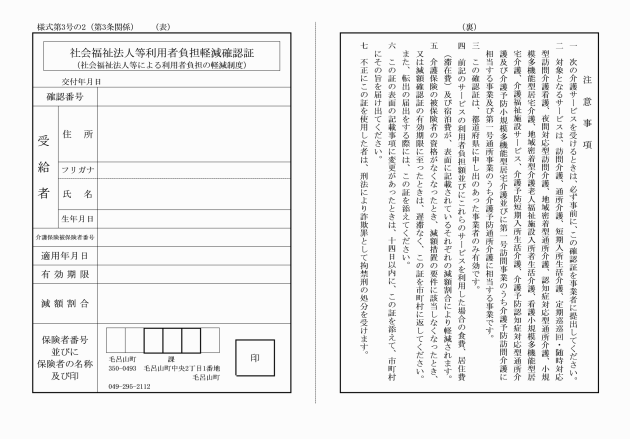 様式第3号の2（第3条関係）　（表）
社会福祉法人等利用者負担軽減確認証
（社会福祉法人等による利用者負担の軽減制度）
交付年月日
確認番号
受給者
住　所
フリガナ
氏　名
生年月日
介護保険被保険者番号
適用年月日
有効期限
減額割合
保険者番号
並びに
保険者の名称
及び印
毛呂山町　課
350-0493　毛呂山町中央2丁目1番地
毛呂山町
049-295-2112
印
（裏）
注意事項
一　次の介護サービスを受けるときは、必ず事前に、この確認証を事業者に提出してください。
二　対象となるサービスは、訪問介護、通所介護、短期入所生活介護、定期巡回・随時対応
型訪問介護看護、夜間対応型訪問介護、地域密着型通所介護、認知症対応型通所介護、小規
模多機能型居宅介護、地域密着型介護老人福祉施設入所者生活介護、看護小規模多機能型居
宅介護、介護福祉施設サービス、介護予防短期入所生活介護、介護予防認知症対応型通所介
護及び介護予防小規模多機能型居宅介護並びに第一号訪問事業のうち介護予防訪問介護に
相当する事業及び第一号通所事業のうち介護予防通所介護に相当する事業です。
三　この確認証は、都道府県に申し出のあった事業者のみ有効です。
四　前記のサービスの利用者負担額並びにこれらのサービスを利用した場合の食費、居住費
（滞在費）及び宿泊費が、表面に記載されているそれぞれの減額割合により軽減されます。
五　介護保険の被保険者の資格がなくなったとき、減額措置の要件に該当しなくなったとき、
又は減額確認証の有効期限に至ったときは、遅滞なく、この証を市町村に返してください。
また、転出の届出をする際には、この証を添えてください。
六　この証の表面の記載事項に変更があったときは、十四日以内に、この証を添えて、市町村
にその旨を届け出てください。
七　不正にこの証を使用した者は、刑法により詐欺罪として拘禁刑の処分を受けます。